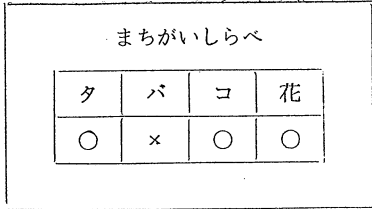 まちがいしらべ
タ バ コ 花
○ × ○ ○